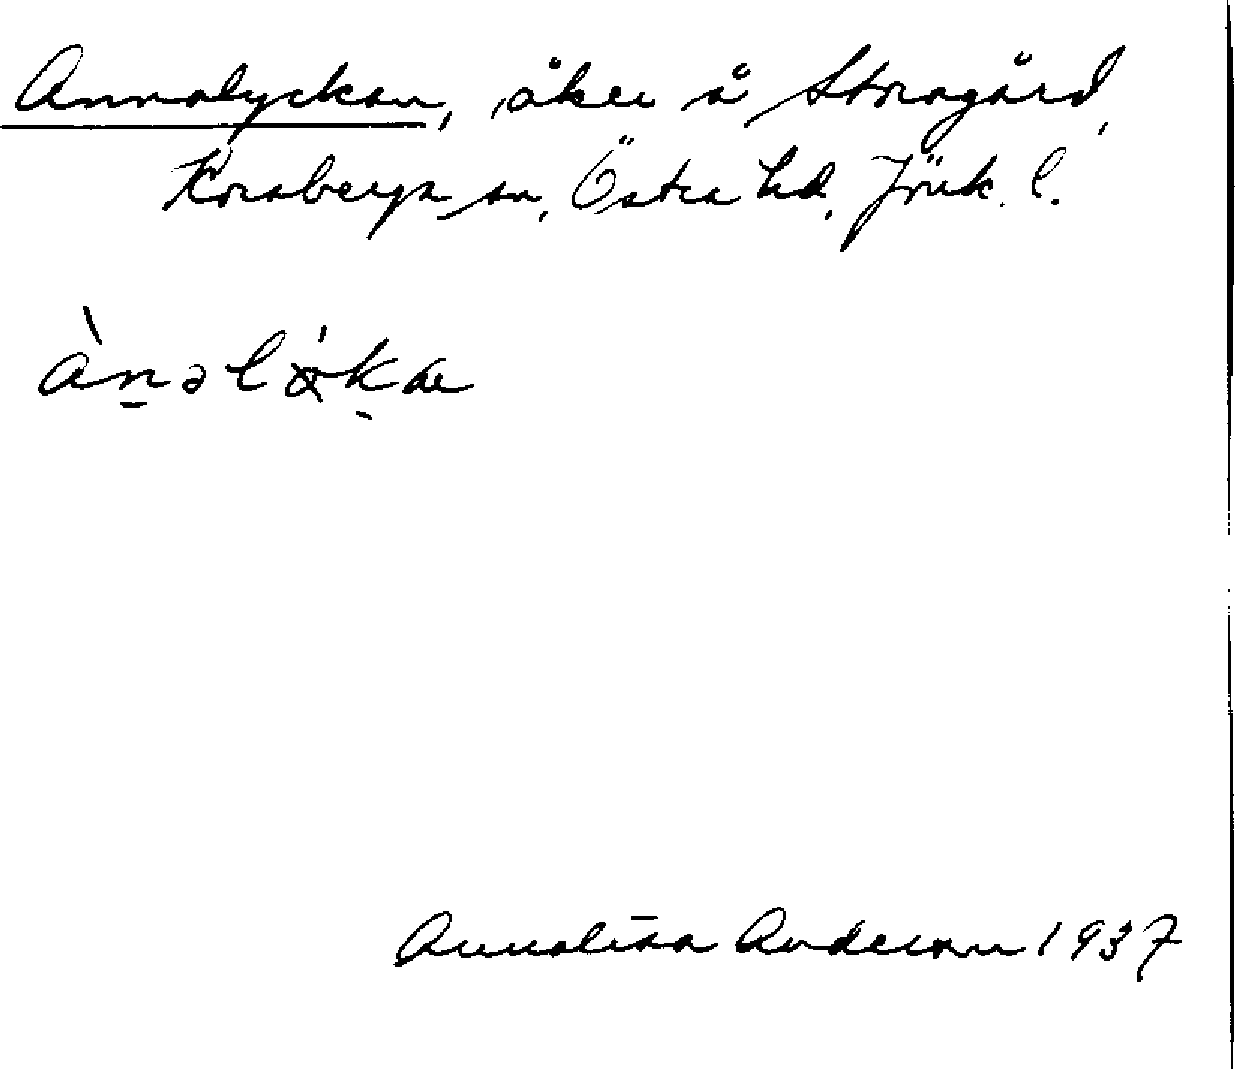 Annalyckan, åker å Storagård,
Korsberga sn, Östra hd, Jönk. l.
ànəlákaे
Annalisa Anderson 1937